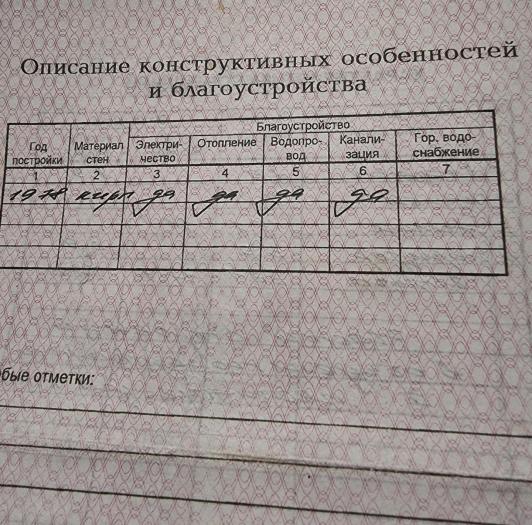 Описание конструктивных особенностей
и благоустройства
Благоустройство
Год постройки Материал стен Электри-чество Отопление Водопро-вод Канали-зация Гор. водо-снабжение
1 2 3 4 5 6 7
1978 кирп да да да да
обые отметки: